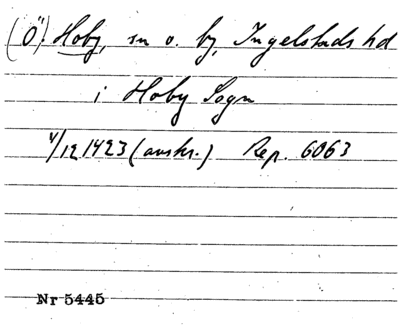 (Ö). Hoby, sn o. by, Ingelstads hd
i Hoby Sogn
4/12 1423 (avskr.) Rep. 6063
Nr 5445